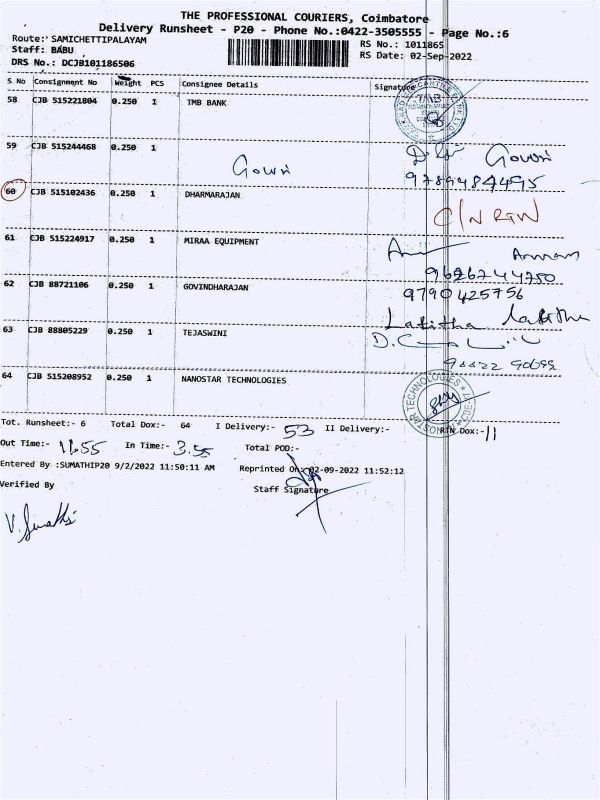 THE PROFESSIONAL COURIERS, Coimbatore
Delivery Runsheet - P20 - Phone No.:0422-3505555 - Page No.:6
Route: SAMICHETTIPALAYAM
RS No.: 1011865
Staff: BABU
RS Date: 02-Sep-2022
DRS No.: DCJB101186506
S No Consignment No Weight PCS Consignee Details Signature
58 CJB 515221804 0.250 1 TMB BANK
TMB
59 CJB 515244468 0.250 1 Gowri Gowri
9789484495
60 CJB 515102436 0.250 1 DHARMARAJAN
C/N RTN
61 CJB 515224917 0.250 1 MIRAA EQUIPMENT
9626744750
62 CJB 88721106 0.250 1 GOVINDHARAJAN 9790425756
Lalitha Lalitha
63 CJB 88805229 0.250 1 TEJASWINI
64 CJB 515208952 0.250 1 NANOSTAR TECHNOLOGIES
Tot. Runsheet:- 6 Total Dox:- 64 I Delivery:- 53 II Delivery:- RTN Dox:- 11
Out Time:- 11.55 In Time:- 3.55 Total POD:-
Entered By :SUMATHIP20 9/2/2022 11:50:11 AM Reprinted On: 02-09-2022 11:52:12
Verified By Staff Signature
V. Sumathi